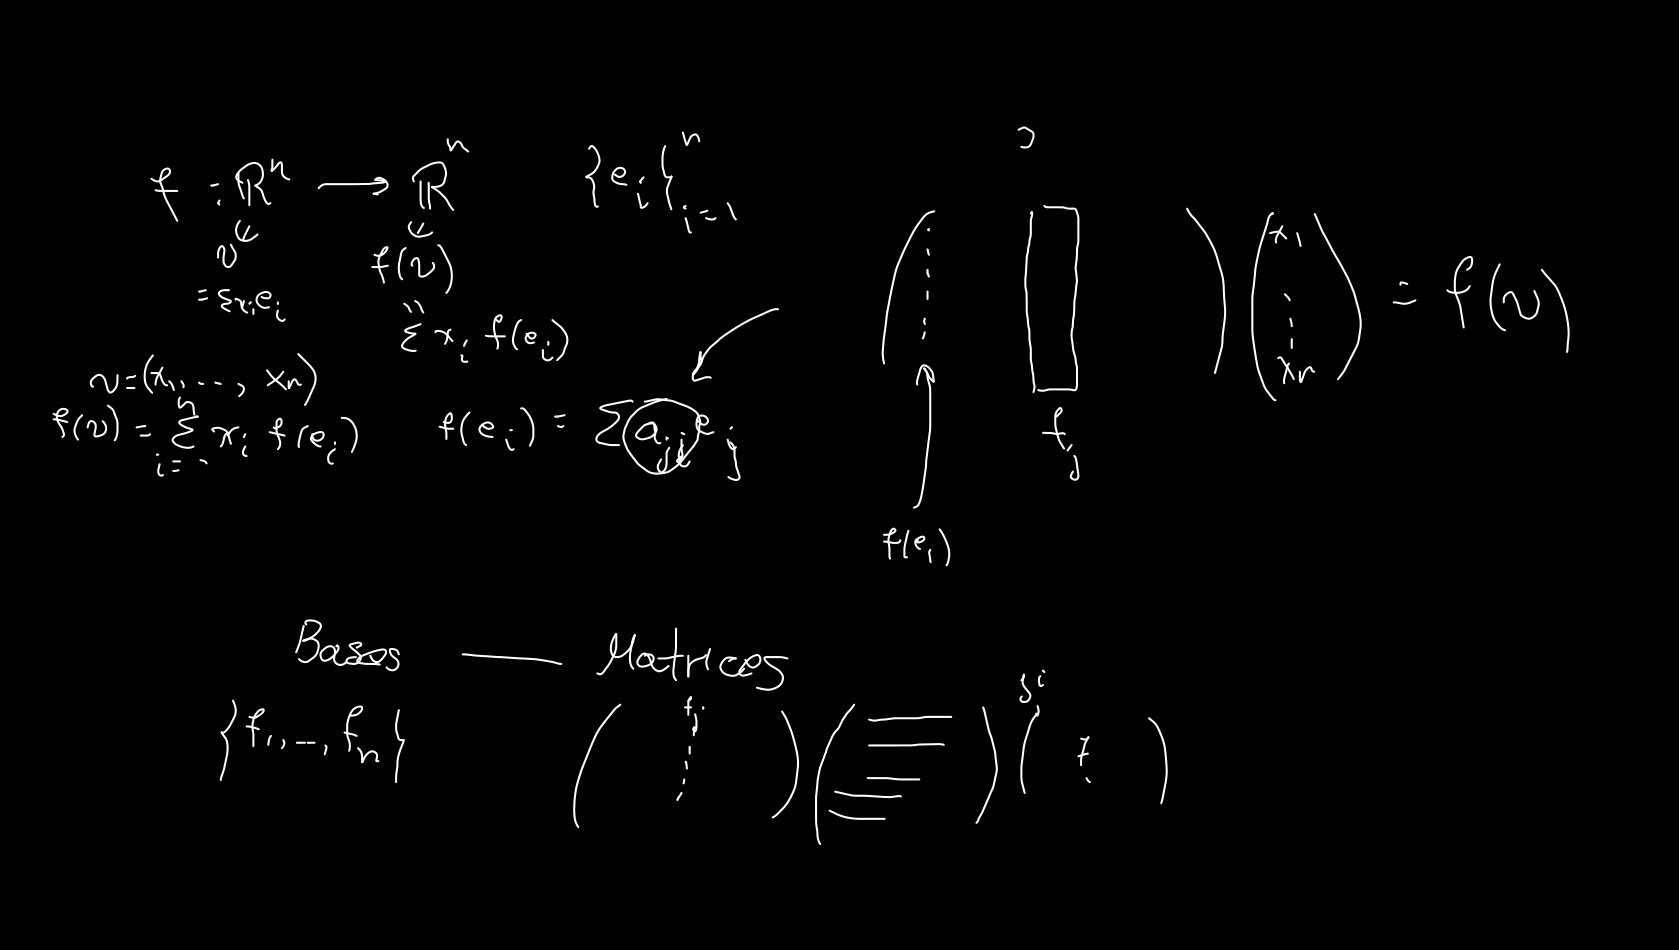 f : ℝⁿ ⟶ ℝⁿ {e_i}ⁿ_{i=1}
v f(v)
= Σx_i e_i
Σ x_i f(e_i)
v = (x_1, ..., x_n)
f(v) = Σⁿ_{i=1} x_i f(e_i) f(e_i) = Σ a_{ji} e_j
( ) (x_1 ⋮ x_n) = f(v)
f_j
f(e_1)
Bases — Matrices
{f_1, ..., f_n} ( f_j ) ( ) ( )